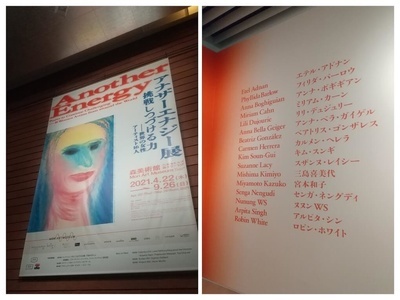 Another
Energy
アナザーエナジー展
挑戦しつづける力
森美術館
2021.4.22
9.26
Etel Adnan
Phyllida Barlow
Anna Boghiguian
Miriam Cahn
Lili Dujourie
Anna Bella Geiger
Beatriz González
Carmen Herrera
Kim Soun-Gui
Suzanne Lacy
Mishima Kimiyo
Miyamoto Kazuko
Senga Nengudi
Nunung WS
Arpita Singh
Robin White
エテル・アドナン
フィリダ・バーロウ
アンナ・ボギギアン
ミリアム・カーン
リリ・デュジュリー
アンナ・ベラ・ガイゲル
ベアトリス・ゴンザレス
カルメン・ヘレラ
キム・スンギ
スザンヌ・レイシー
三島喜美代
宮本和子
センガ・ネングディ
ヌヌンWS
アルピタ・シン
ロビン・ホワイト